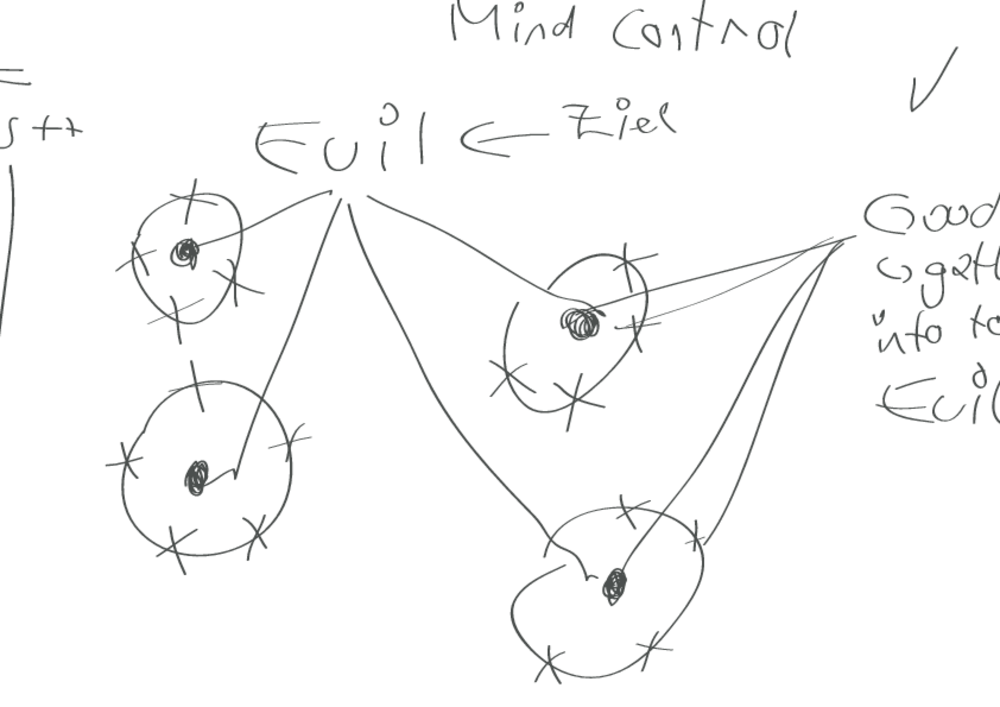 Mind Control
Evil ← Ziel
Good
into
Evil